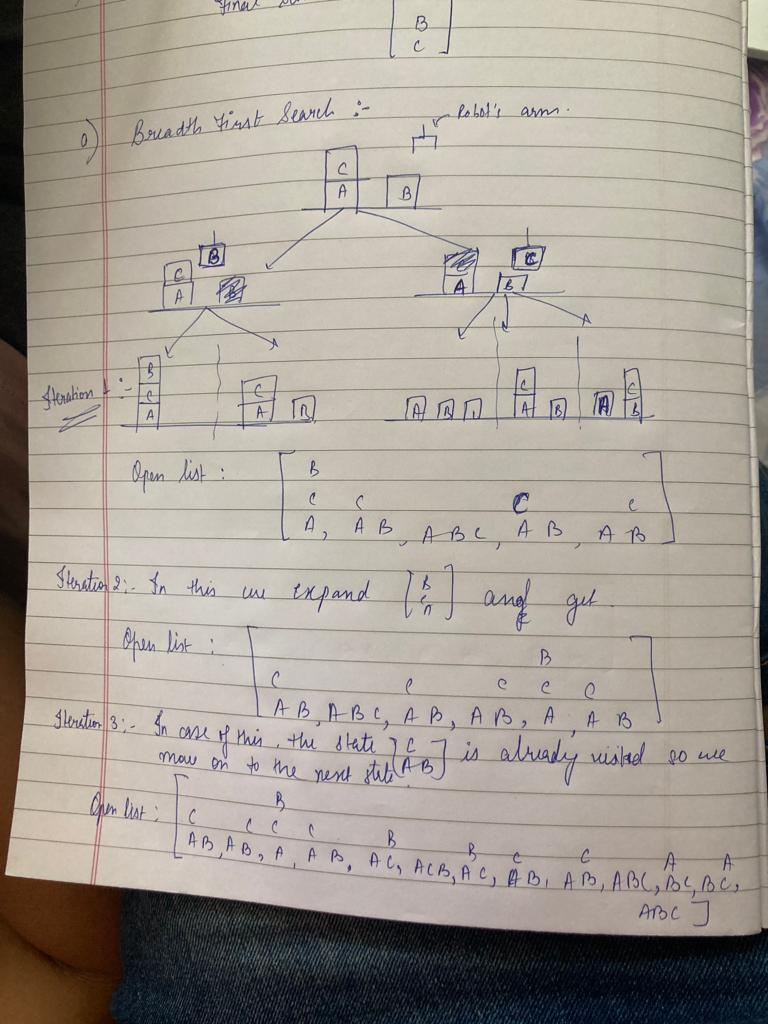 Final
B
C
a) Breadth First Search :-
Robot's arm.
C
A B
B
C
A
C
A B
B
C
A
C
A B
A B C
C
A B
C
A B
Iteration 1 :-
Open list : [ B
C C C C
A, A B, A B C, A B, A B ]
Iteration 2:- In this we expand [ B C A ] and get
Open list : [ B
C C C C C
A B, A B C, A B, A B, A, A B ]
Iteration 3:- In case of this, the state [ C A B ] is already visited so we
move on to the next state.
Open list : [ B
C C C C B B C C A A
AB, AB, A, A B, AC, ACB, AC, AB, AB, ABC, BC, BC,
ABC ]